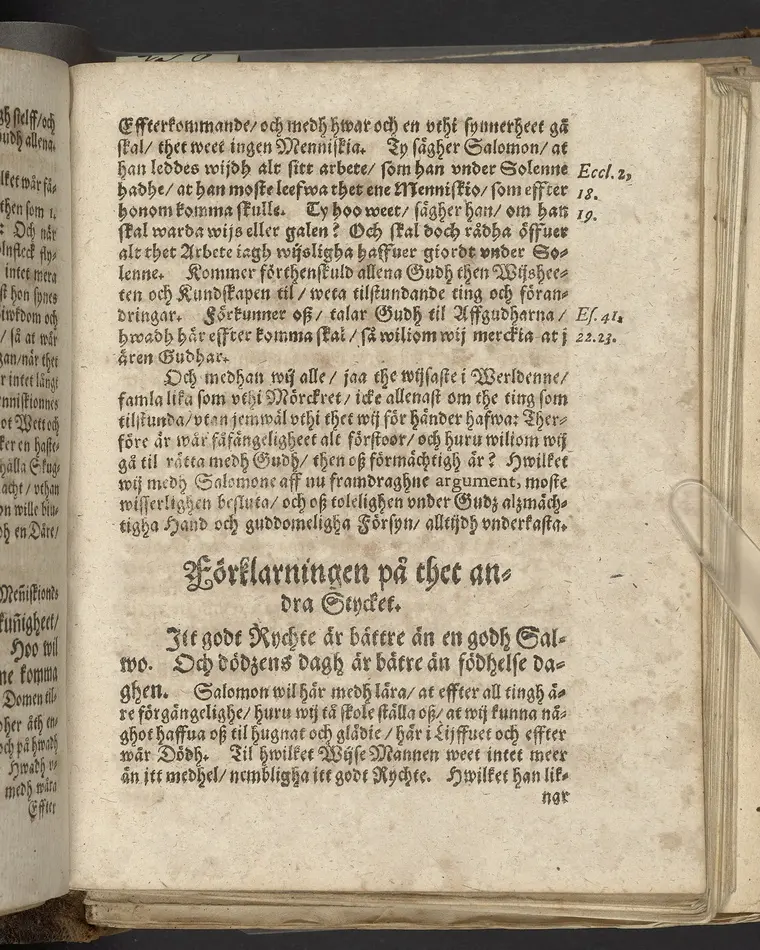 Effterkommande/ och medh hwar och en vthi synnerheet gå
skal/ thet weet ingen Menniskia. Ty sägher Salomon/ at
han leddes wijdh alt sitt arbete/ som han vnder Solenne
hadhe/ at han moste leefwa thet ene Menniskio/ som effter
honom komma skulle. Ty hoo weet/ sägher han/ om han
skal warda wijs eller galen? Och skal doch rådha öffuer
alt thet Arbete iagh wijsligha haffuer giordt vnder So-
lenne. Kommer förthenskuld allena Gudh then Wijshee-
ten och Kundskapen til/ weta tilstundande ting och föran-
dringar. Förkunner oß/ talar Gudh til Affgudharna/
hwadh här effter komma skal/ så wiliom wij merckia at j
ären Gudhar.
Eccl. 2,
18.
19.
Es. 41.
22.23.
Och medhan wij alle/ jaa the wijsaste i Werldenne/
famla lika som vthi Mörckret/ icke allenast om the ting som
tilstunda/ vtan jemwäl vthi thet wij för händer hafwa: Ther-
före är wår fåfängeligheet alt förstoor/ och huru wiliom wij
gå til rätta medh Gudh/ then oß förmächtigh är? Hwilket
wij medh Salomone aff nu framdraghne argument, moste
wisserlighen besluta/ och oß tolelighen vnder Gudz alzmäch-
tigha Hand och guddomeligha Försyn/ alltijdh vnderkasta.
Förklarningen på thet an-
dra Stycket.
Itt godt Rychte är bättre än en godh Sal-
wo. Och dödzens dagh är bätre än födhelse da-
ghen. Salomon wil här medh lära/ at effter all tingh ä-
re förgängelighe/ huru wij tå skole ställa oß/ at wij kunna nå-
ghot haffua oß til hugnat och glädie/ här i Lijffuet och effter
wår Dödh. Til hwilket Wijse Mannen weet intet meer
än itt medhel/ nembligha itt godt Rychte. Hwilket han lik-
nar